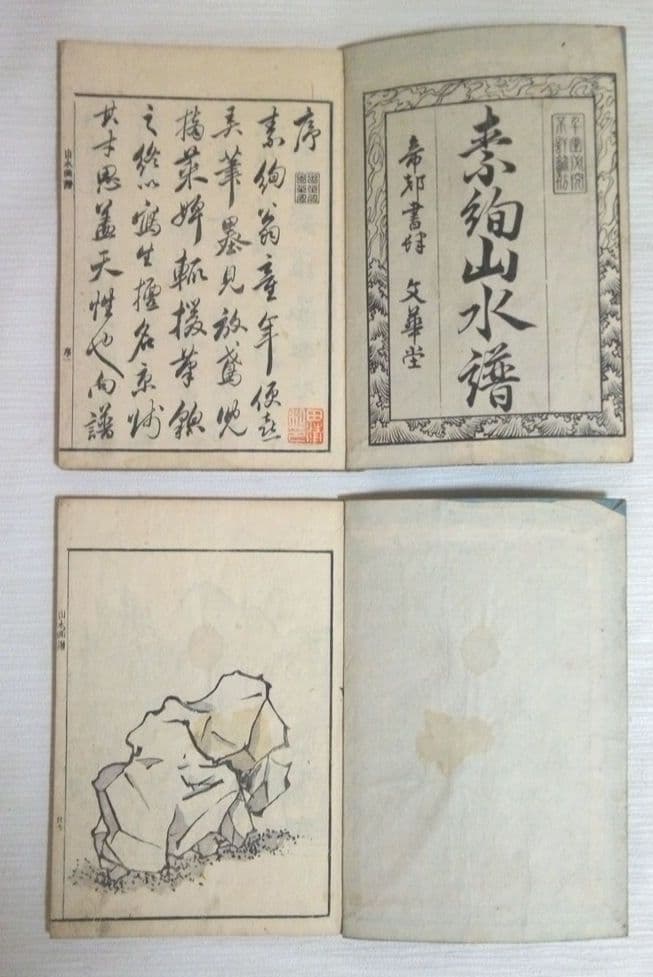 素絢山水譜
帝都書肆 文華堂
序
素絢翁童年便喜
弄筆墨見放鳶兒
摘菜婢輒援筆
之終以寫生擅名京城
其才思蓋天性也向譜
山水画譜
序一
山水画譜